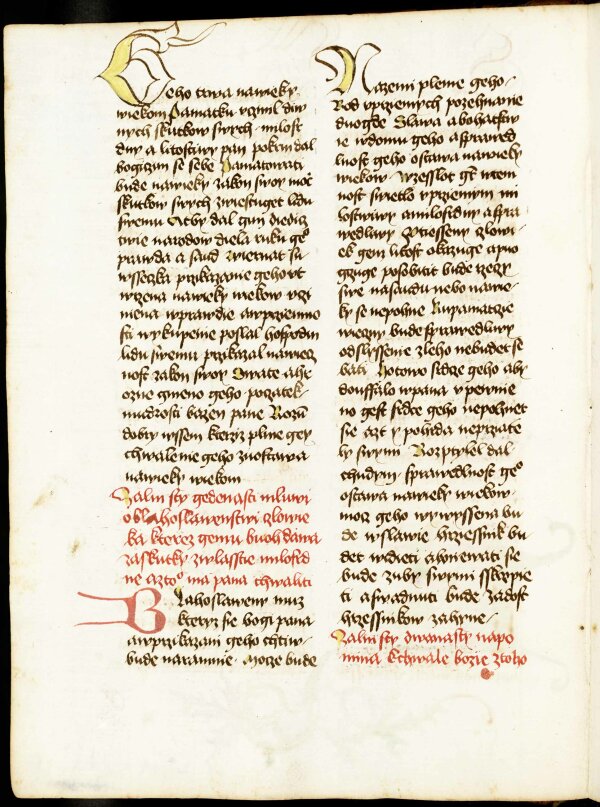 Geho trwa nawieky
wiekom Pamatku vczinil diw
nych skutkow swych milosr
diw a litostiwy pan pokrm dal
bogiczim se sebe Pamatowati
bude nawieky zakon swoy moc
skutkow swych zwiestuget lidu
swemu Aby dal gim diedicz
twie narodow diela ruku geo
prawda a saud Wiernat su
wsseczka przikazanie geho vt
wrzena nawieky wiekow vczi
niena wprawdie awprziemno
sti wykupenie poslal hospodin
lidu swemu przikazal nawiecz
nost zakon swoy Swate ahr
ozne gmeno geho poczatek
mudrosti bazen panie Rozum
dobry wssem kterziz plnie gey
chwalenie geho zuostawa
nawieky wiekom
Zalm sty gedenasti mluwi
oblahoslawenstwi czlowie
ka kterez gemu buoh dawa
zaskutky zwlasstie milosrd
ne azto ma pana chwaliti
Blahoslaweny muz
kteryz se bogi pana
awprzikazani geho chtiw
bude naramnie Mocze bude
Nazemi pleme geho
Rod vprziemych pozehnanie
duogde Slawa abohatstw
ie wdomu geho asprawed
lnost geho ostawa nawieky
wiekow Wzesslot gt wtem
nost swietlo vprziemym mi
lostiwy amilosrdny aspra
wedliwy Vtiesseny czlowi
ek genz litost okazuge apuo
gczuge posobitit bude rzeczi
swe nasaudu nebo nawie
ky se nepohne Wpamatcze
wieczny bude sprawedliwy
odslyssenie zleho nebudet se
bati Hotowo srdcze geho aby
daufalo wpana vpewnie
no gest srdce geho nepohnet
sie azt y pohrda neprzate
ly swymi Rozptylel dal
chudym sprawedlnost geo
ostawa nawieky wiekow
moc geho wywyssena bu
de wslawie hrziessnik bu
det widieti ahniewati se
bude zuby swymi sskrzipie
ti aswadnuti bude zadost
hrziessnikow zahyne
Zalm sty dwanasty napo
mina kchwale bozie ztoho